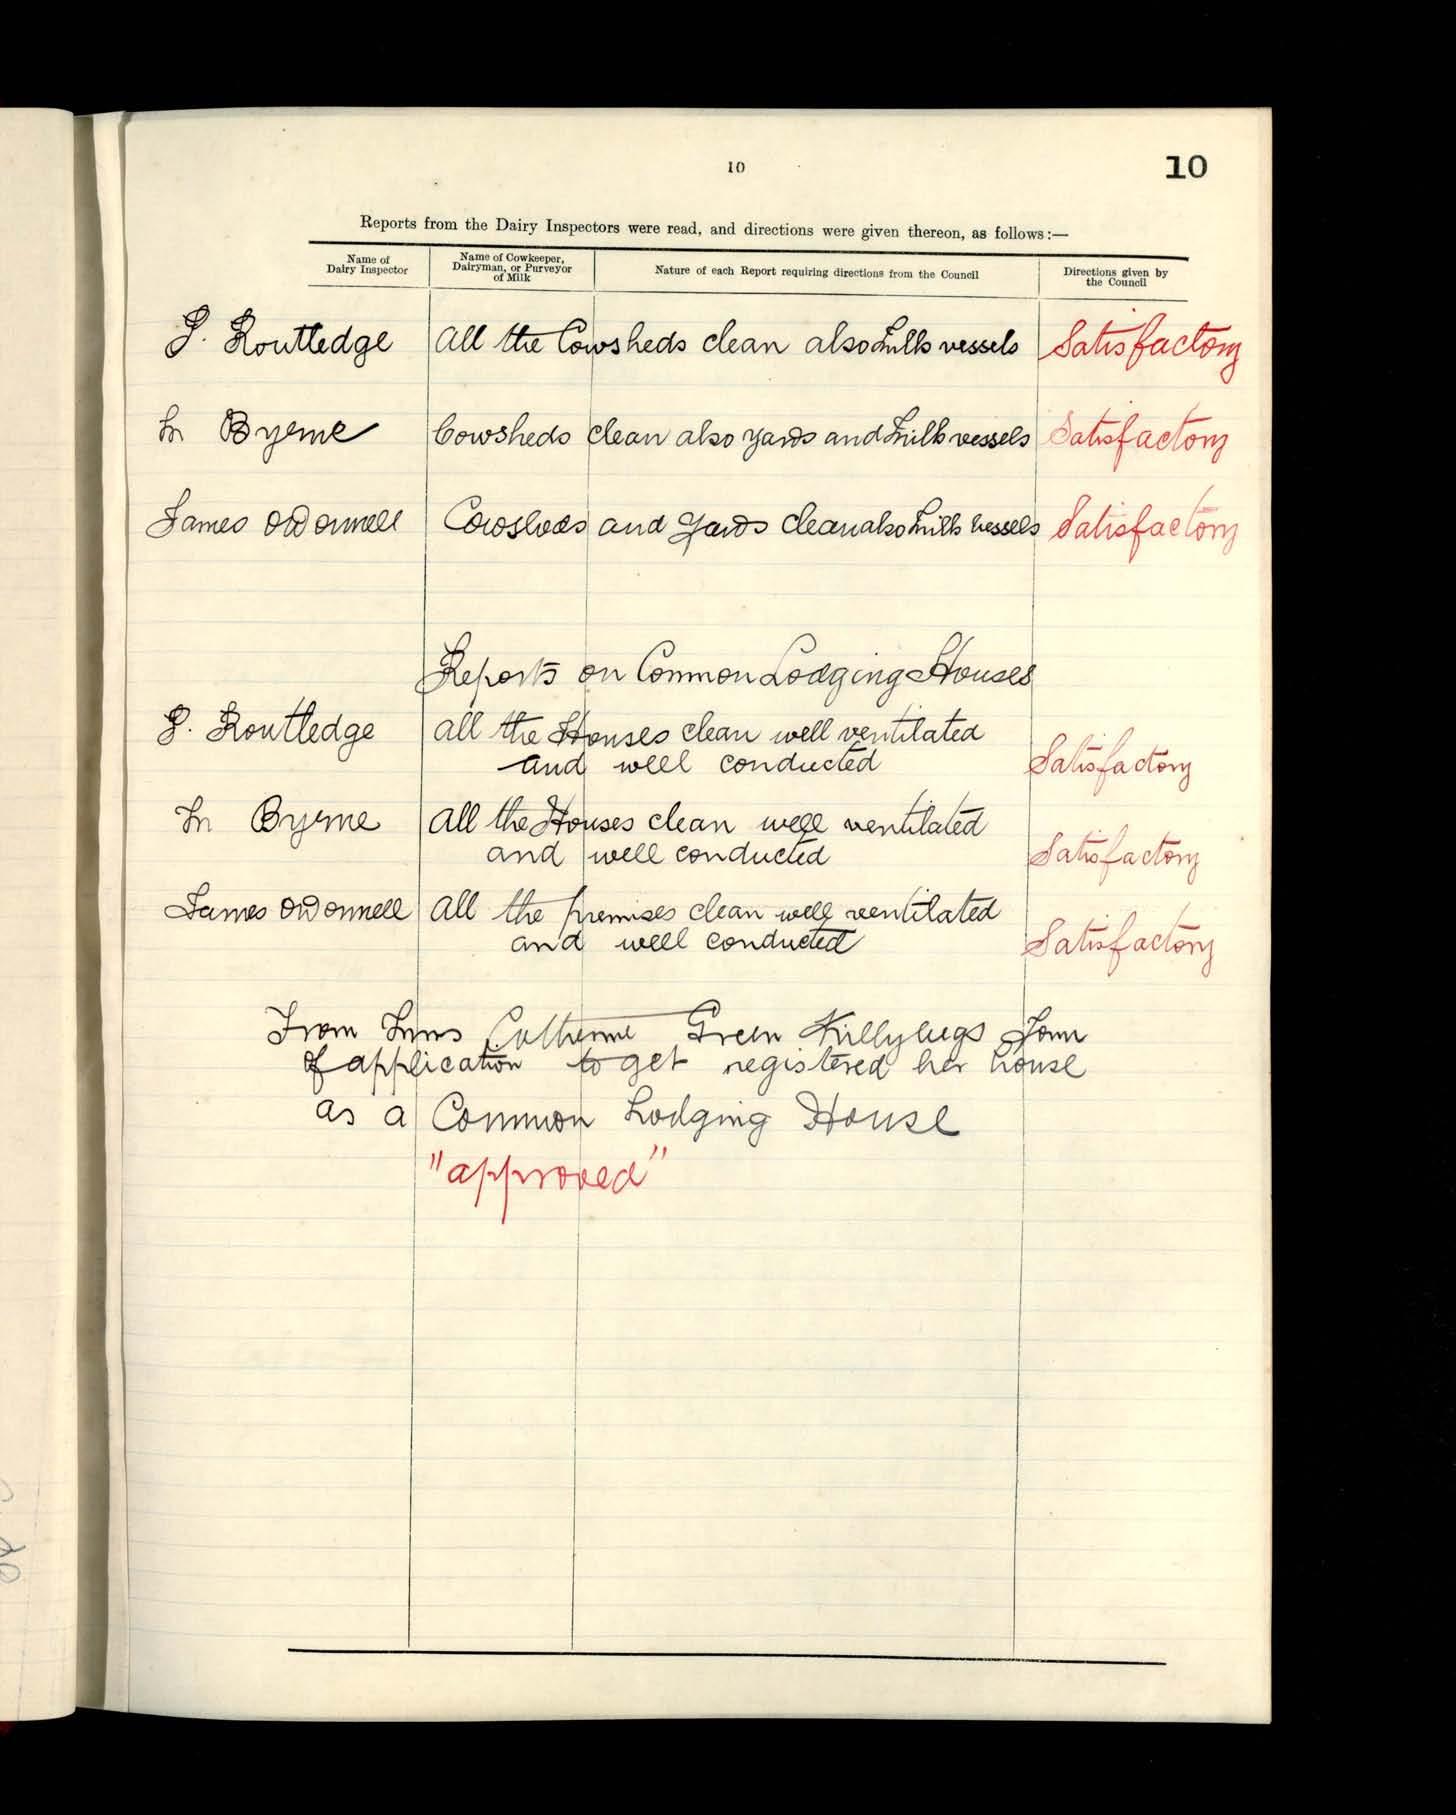 10
10
Reports from the Dairy Inspectors were read, and directions were given thereon, as follows:—
Name of Dairy Inspector
Name of Cowkeeper, Dairyman, or Purveyor of Milk
Nature of each Report requiring directions from the Council
Directions given by the Council
Routledge All the Cowsheds clean also milk vessels Satisfactory
Byrne Cowsheds clean also yards and milk vessels Satisfactory
James O'Donnell Cowsheds and yards clean also milk vessels Satisfactory
Reports on Common Lodging Houses
Routledge All the Houses clean well ventilated
and well conducted Satisfactory
Byrne All the Houses clean well ventilated
and well conducted Satisfactory
James O'Donnell All the premises clean well ventilated
and well conducted Satisfactory
From Green Killybegs Form
of application to get registered her house
as a Common Lodging House
"approved"